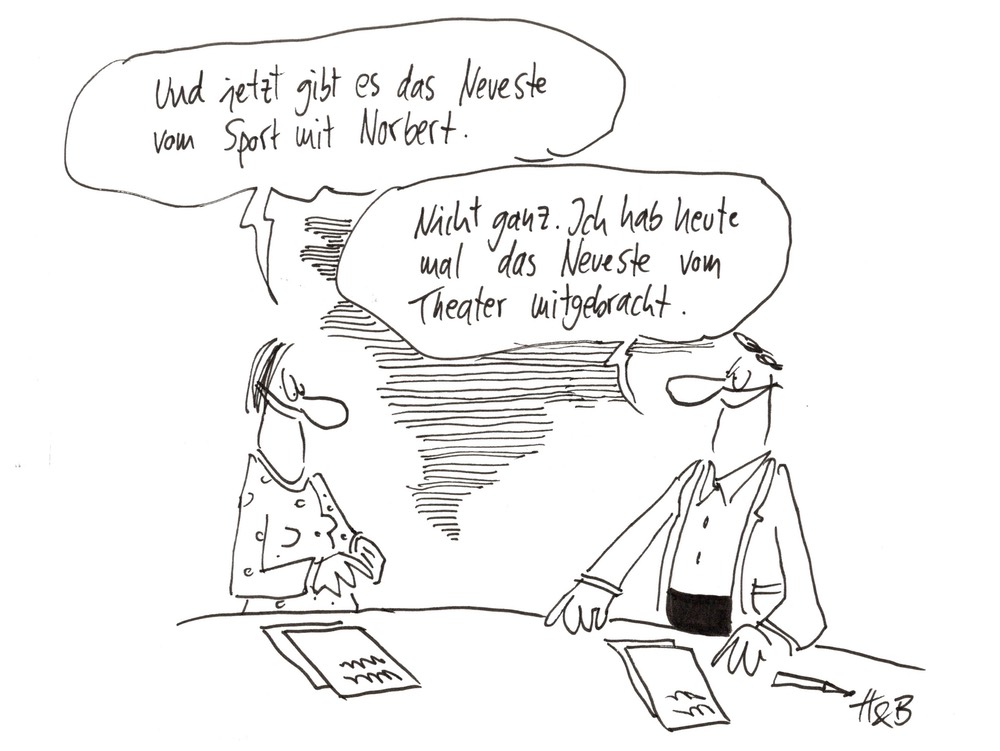 Und jetzt gibt es das Neueste
vom Sport mit Norbert.
Nicht ganz. Ich hab heute
mal das Neueste vom
Theater mitgebracht.
H&B